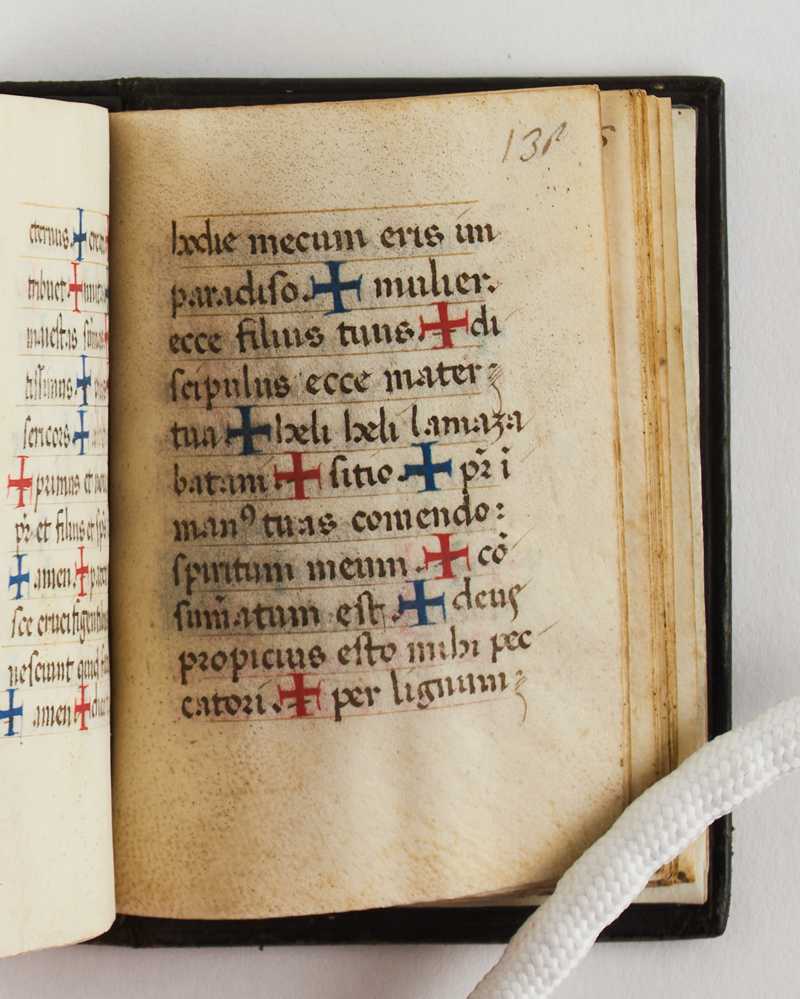 eternus ✠
tribuet ✠
maiestas
✠
sericors ✠
✠ primus et
pr̄ et filius et sp̄s
✠ amen ✠
sce crucifigentib
nesciunt quid
✠ amen ✠
131
hodie mecum eris im
paradiso. ✠ mulier.
ecce filius tuus. ✠ di
scipulus ecce mater
tua ✠ heli heli lamaza
batani ✠ sitio. ✠ pr̄ ī
manꝰ tuas comendo:
spiritum meum. ✠ cō
sum̄atum est. ✠ deus
propicius esto mihi pec
catori. ✠ per lignum